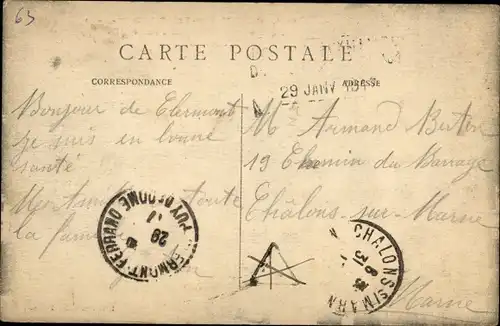 63
CARTE POSTALE
CORRESPONDANCE
ADRESSE
29 JANV
Bonjour de Clermont
je suis en bonne
santé
toute
la famille
M Armand Bertin
19 Chemin du Barrage
Châlons-sur-Marne
Marne
CLERMONT-FERRAND PUY DE DOME
29
CHALONS S MARNE
31